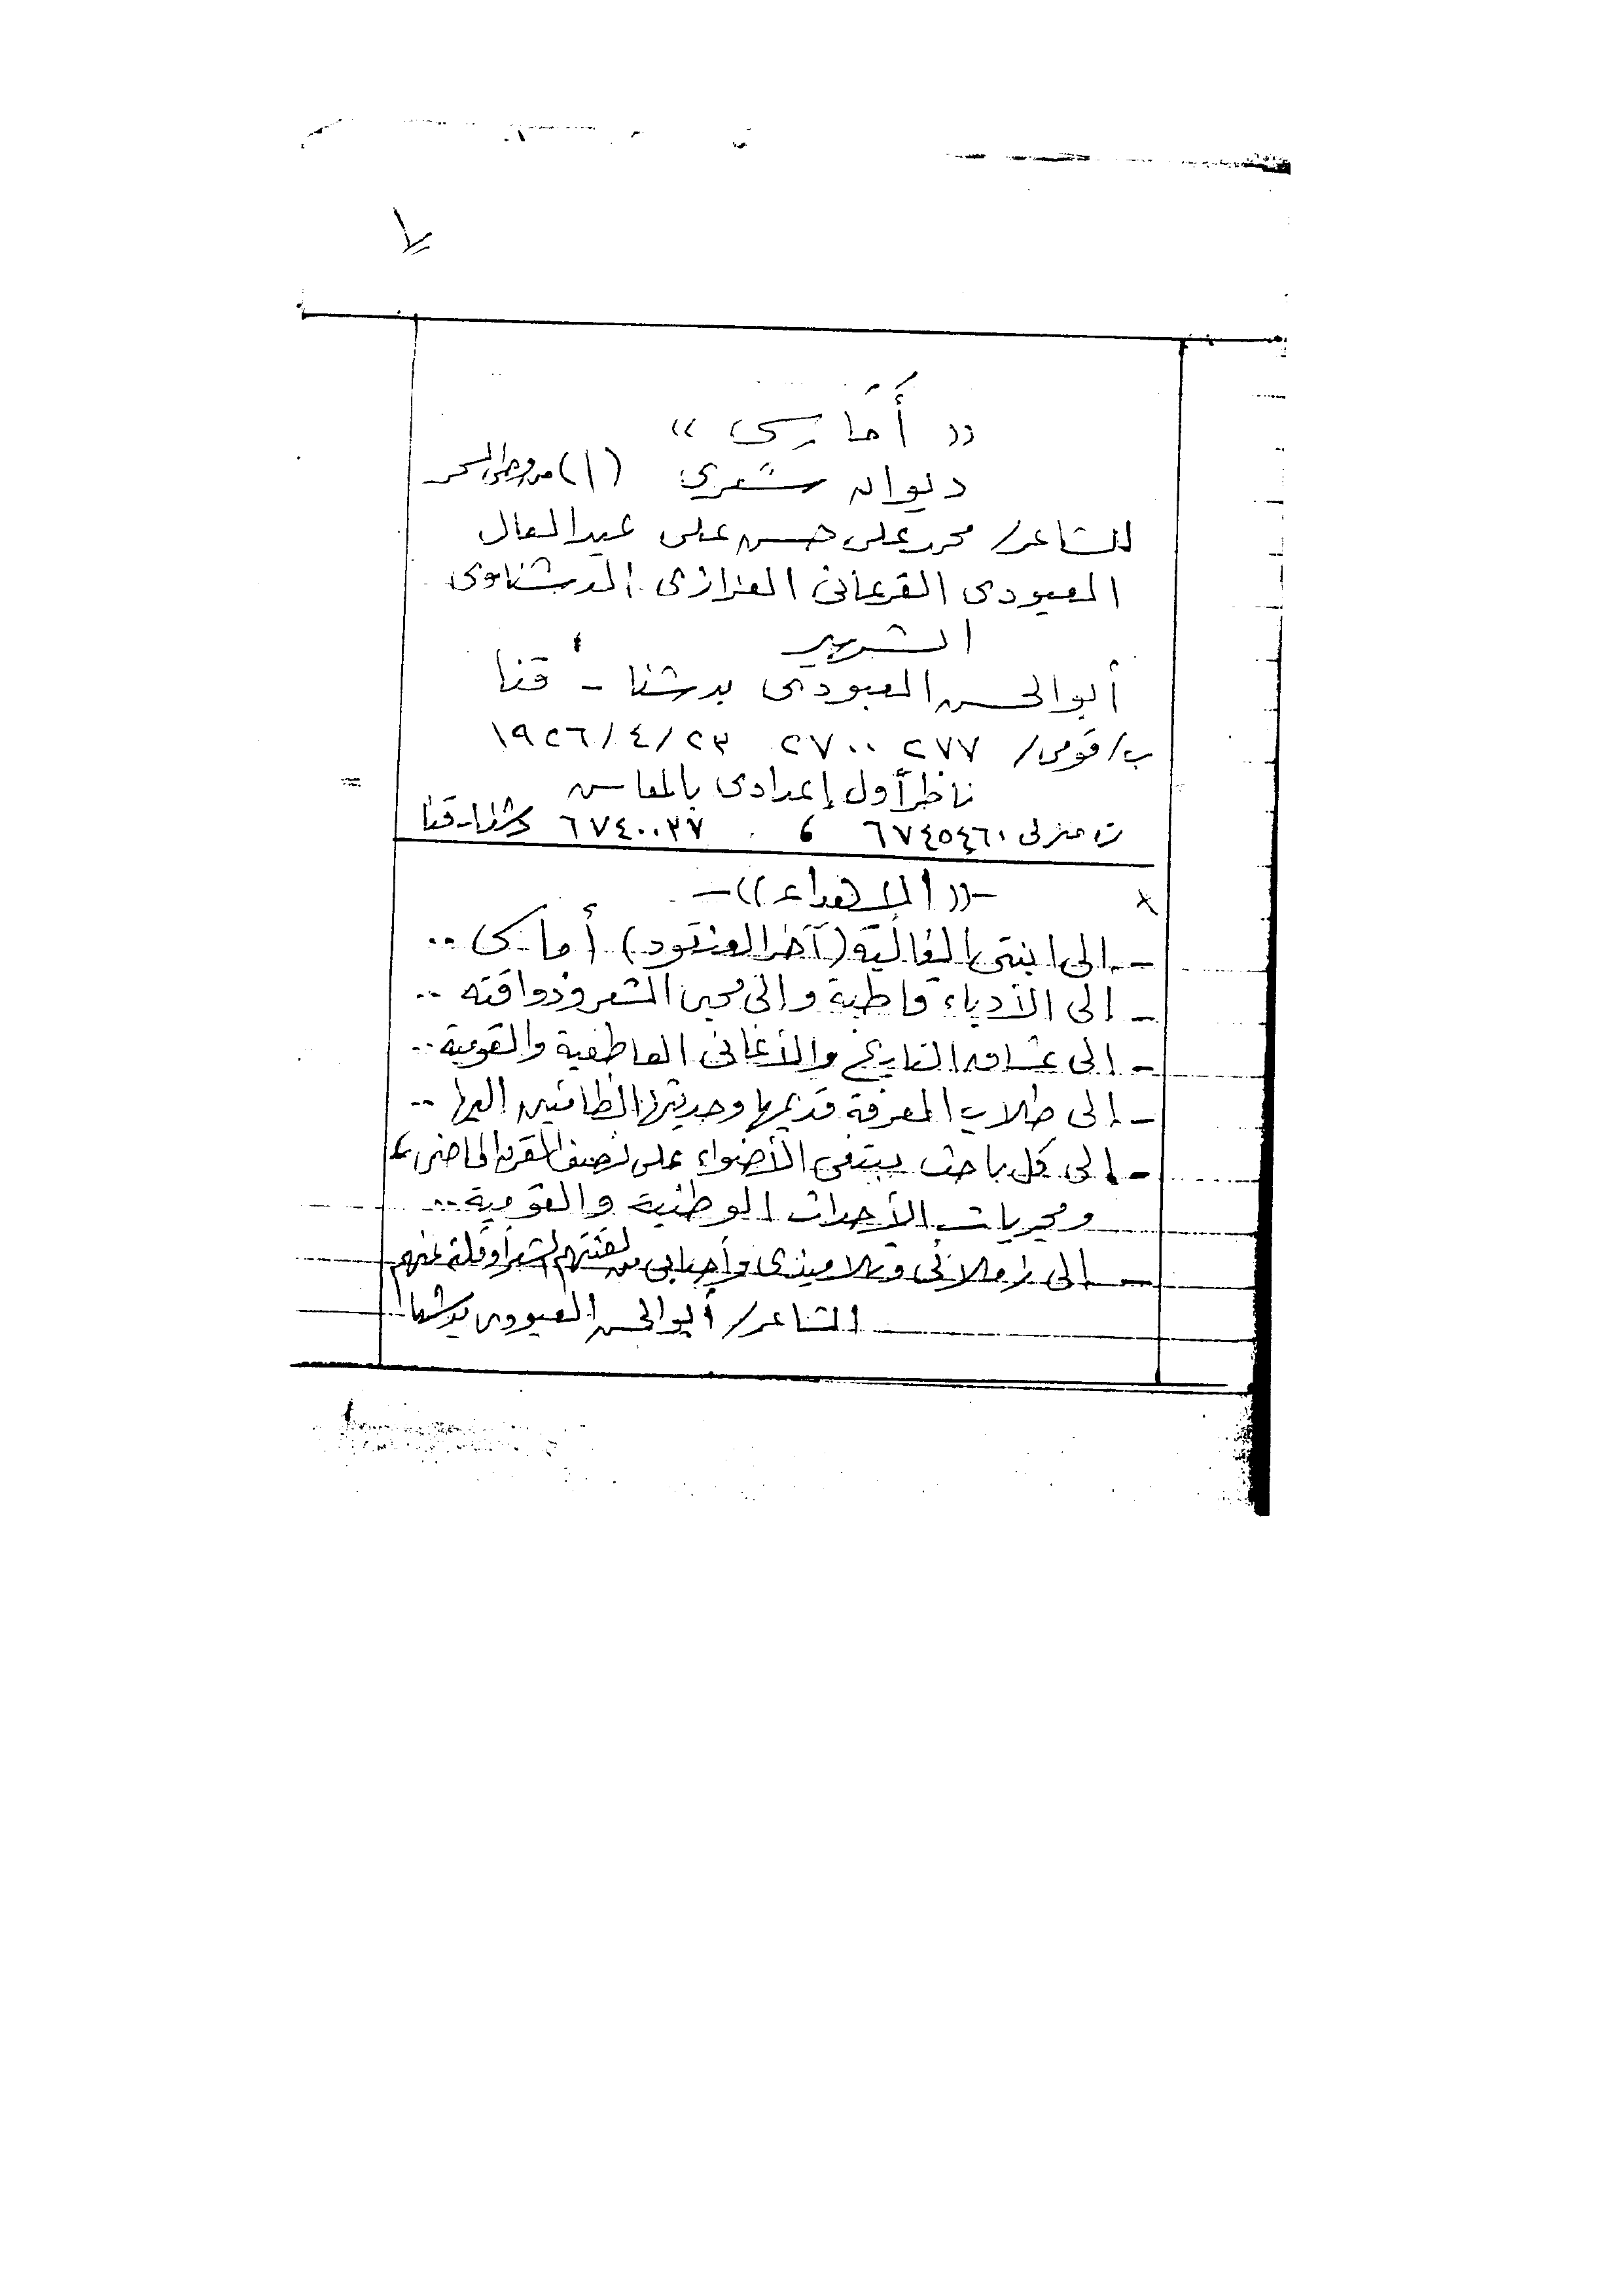 (( أَمَارسى ))
ديوان شعري (١) من وحى السحر
للشاعر/ محمد على حسن على عبد العال
العبودى القرعانى العزازى الدشناوى
الشهير
أبو الحسن العبودى بدشنا - قنا
ب/ قومى/ ٢٧٧ ٢٧٠٠ ٢٣/٤/١٩٢٦
ناظر أول إعدادى بالمعاش
ت منزلى ٦٧٤٥٤٦٠ ، ٦٧٤٠٠٣٧ دشنا - قنا
-(( الإهداء ))-
- إلى ابنتى الغالية (آخر العنقود) أمارسى ..
- إلى الأدباء قاطبة وإلى محبى الشعر وذواقته ..
- إلى عشاق التاريخ والأغانى العاطفية والقومية ..
- إلى طلاب المعرفة قديمها وحديثها الظامئين إليها ..
- إلى كل باحث يبتغى الأضواء على نصف القرن الماضى ،
ومجريات الأحداث الوطنية والقومية ..
- إلى زملائى وتلاميذى وأحبابى من لقنتهم شعراً وقلته عنهم
الشاعر/ أبو الحسن العبودى بدشنا